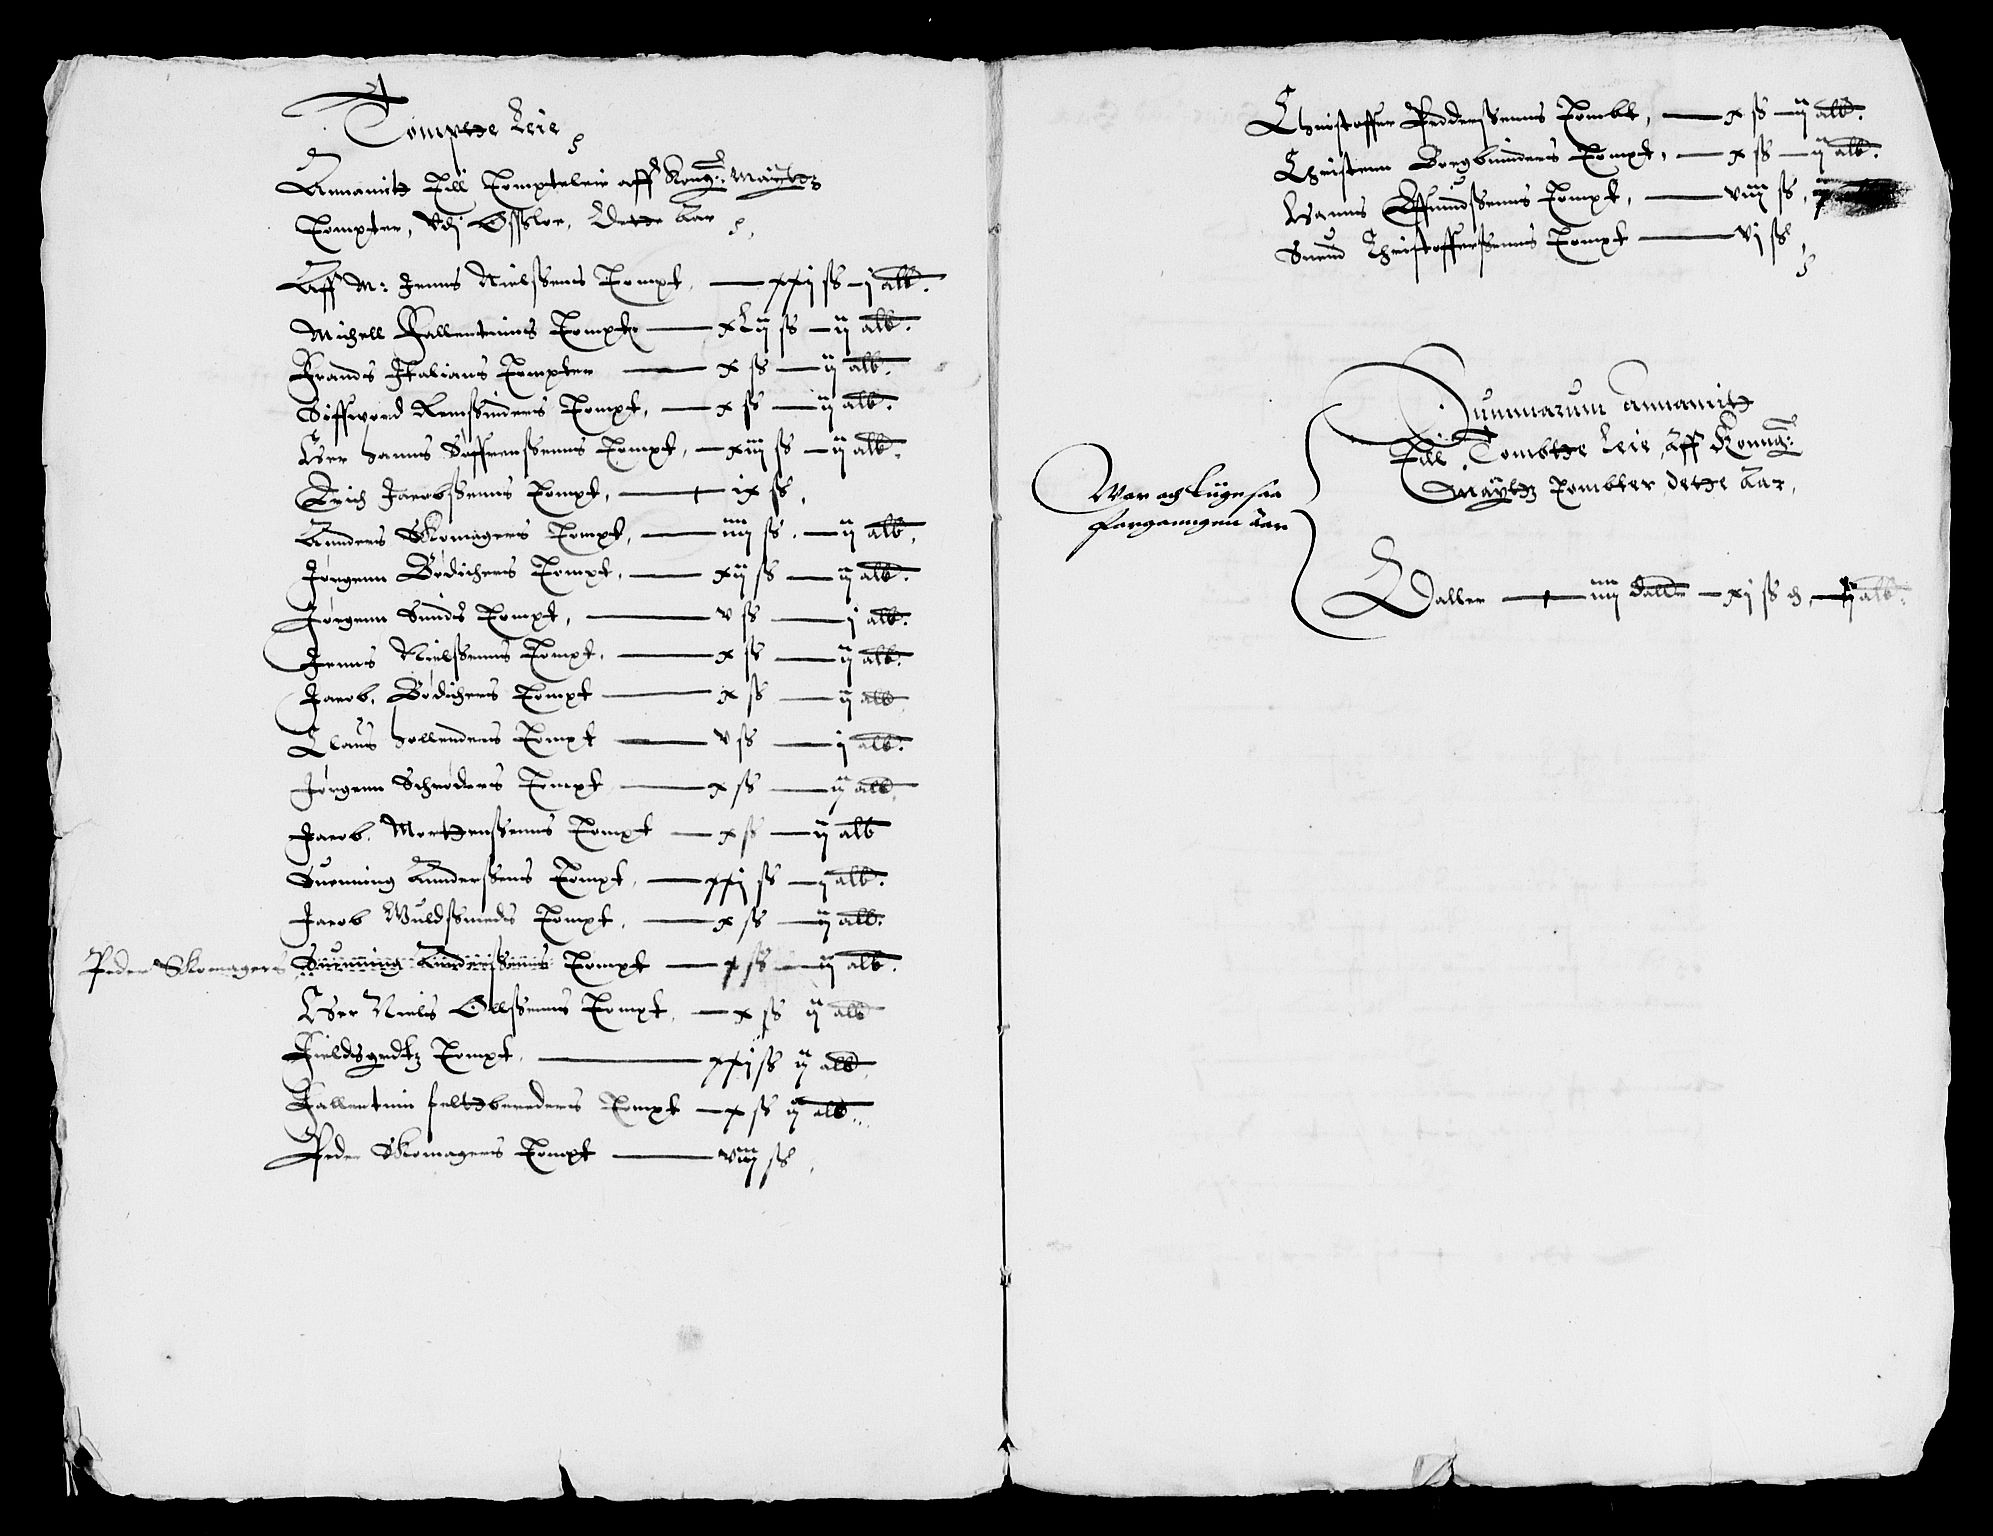 Tompthe Leie
Annamith Till Tompteleie aff Kong: Maÿtz
Tompter, Vdj Opsloe, Dette Aar
Aff M: Jenns Nielssenns Tompt, — xxj ss — j alb.
Michell Fallentinns Tompt — xLij ss — ij alb.
Frands Italians Tompter — x ss — ij alb.
Siffword Remsniders Tompt, — x ss — ij alb.
Her Hanns Søffrenssenns Tompt, — xiij ss — ij alb.
Erich Jacobssenns Tompt, — ix ss,
Anders Skomagers Tompt, — iiij ss, — ij alb.
Jørgenn Bødichers Tompt, — xij ss — ij alb.
Jørgenn Sunds Tompt, — v ss — j alb.
Jenns Nielssenns Tompt, — x ss — ij alb.
Jacob, Bødichers Tompt — x ss — ij alb.
Claus Hollenders Tompt — v ss — j alb.
Jørgenn Schrøders Tompt — x ss — ij alb.
Jacob, Morthenssenns Tompt — x ss — ij alb
Suenning Annderssens Tompt, — xxj ss — j alb.
Jacob Guldsmeds Tompt, — x ss — ij alb.
Peder Skomagers Suenning Anderssenns Tompt — x ss — ij alb.
Her Niels Ollssenns Tompt, — x ss ij alb
Tompt, — xxj ss ij alb.
Fallentinn felthbereders Tompt — x ss ij alb.
Peder Skomagers Tompt — viij ss,
Christoffer Pedderssenns Tombt, — x ss — ij alb.
Christenn Borgbinders Tompt, — x ss — ij alb.
Hanns Tompt, — viij ss,
Suend Christofferssenns Tompt — vj ss
Summarum Annamith
Till Tombthe Leie, Aff Konng:
Maÿtz Tombter dette Aar,
War och Liigesaa
forganngen Aar
Daller — iiij dalle — xj ss — ij alb.